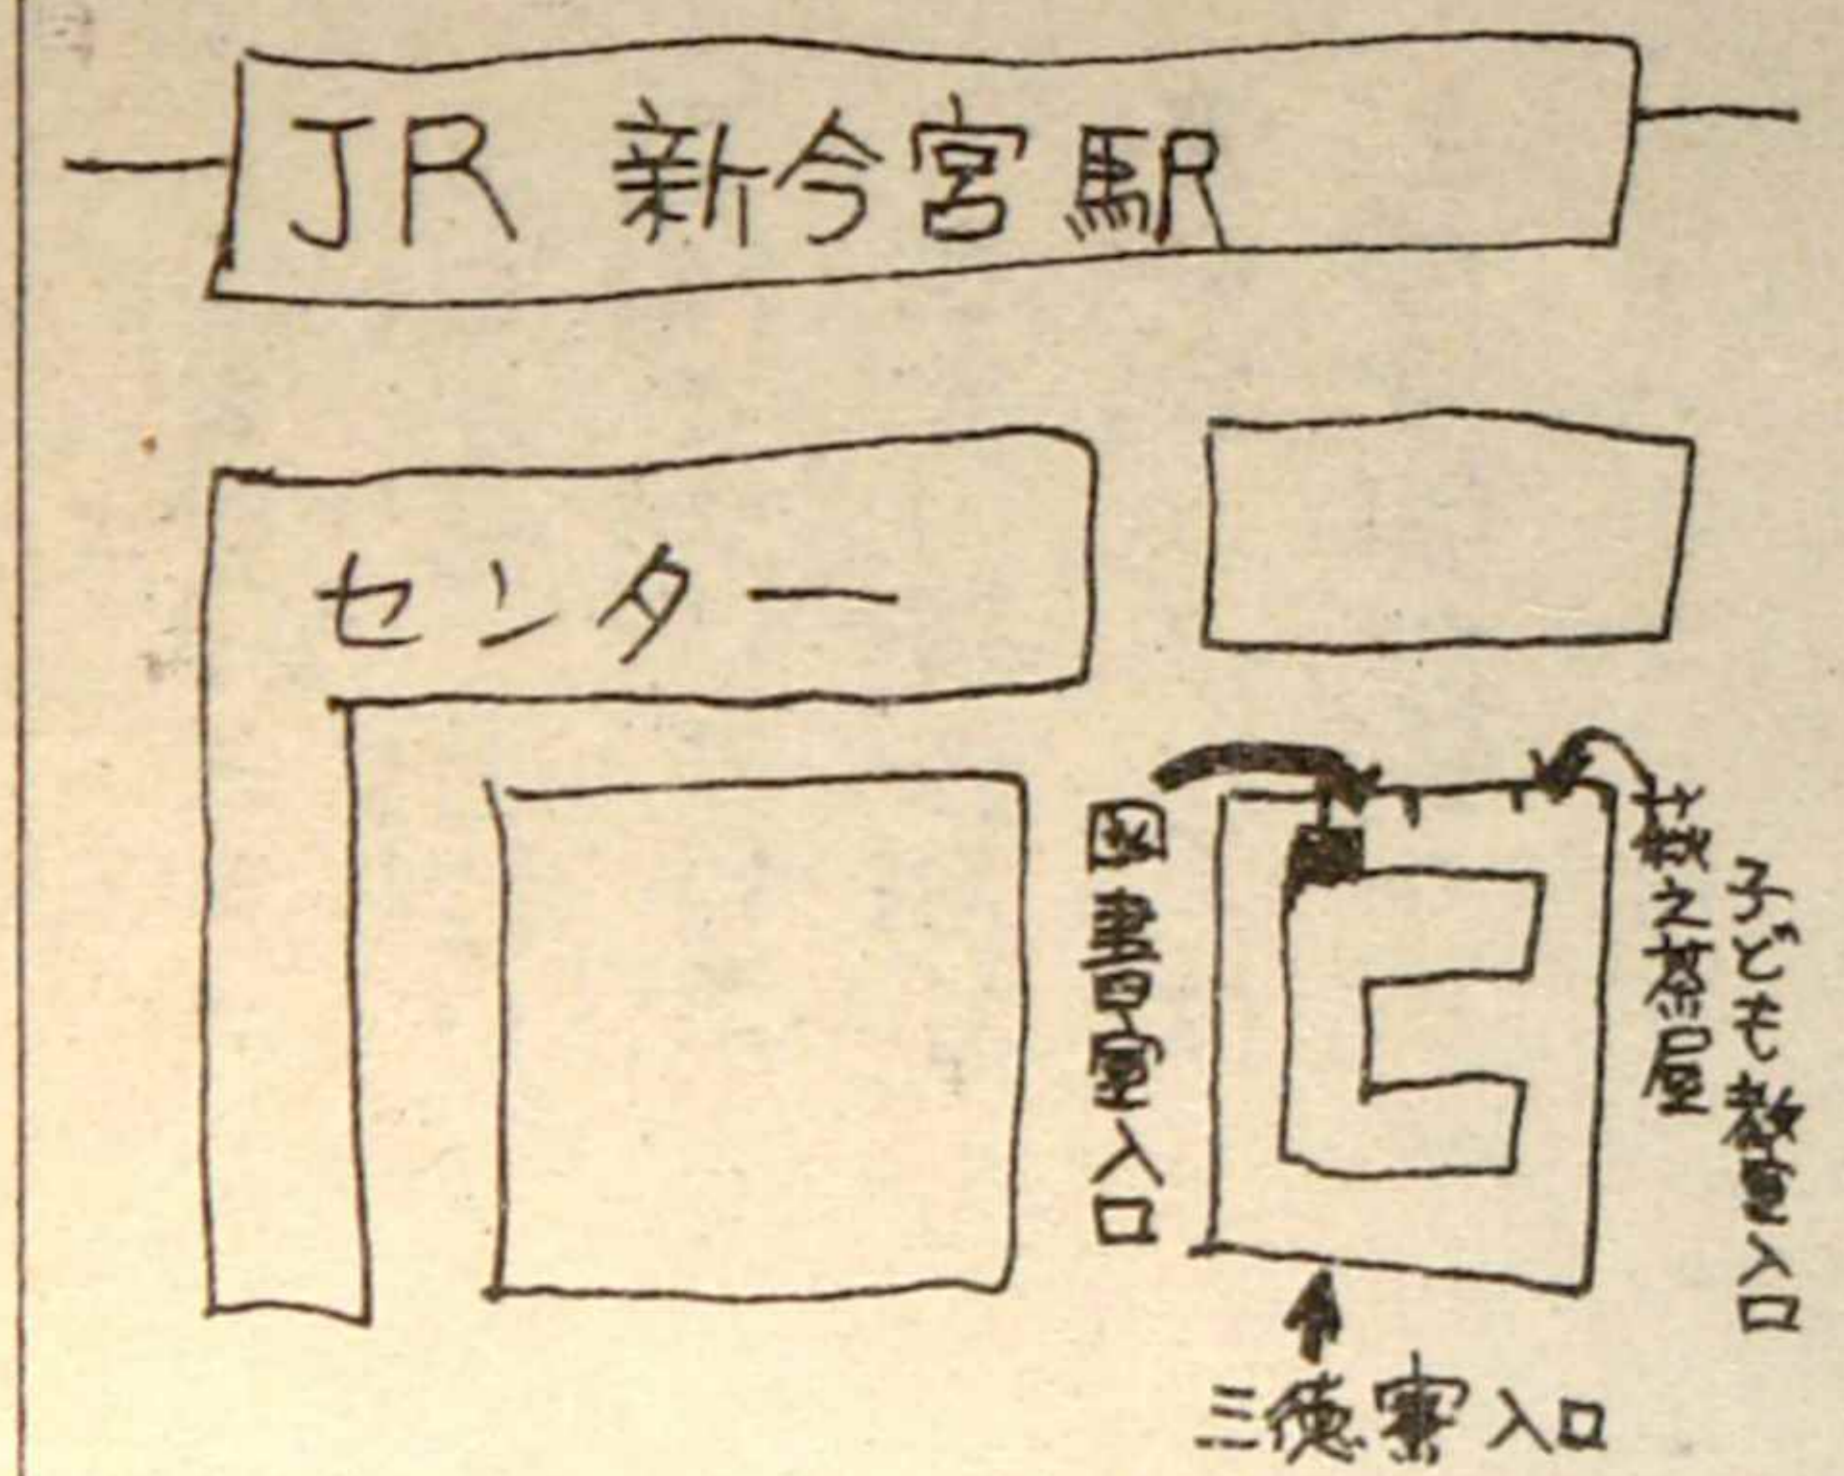 JR 新今宮駅
センター
図書室入口
萩之茶屋
子ども教室入口
三徳寮入口